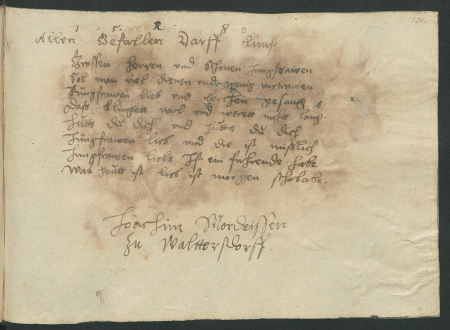 1 5 8
Allen Gefallen Darff Kunst
Grossen herren vnd schonen Jungfrawen
Sol man viel dienen vnd wenig vertrawen
Jungfrawen lieb vnd lerchen gesang
Das klingett wol vnd werett nicht lang
Hutte du dich vnd hutte du dich
Jungfrawen lieb vnd die ist mißlich
Jungfrawen liebe Ist ein fahrende habe
Was heutt ist lieb ist morgen schababe.
Joachim Mordeissen
Zu Walttersdorff.